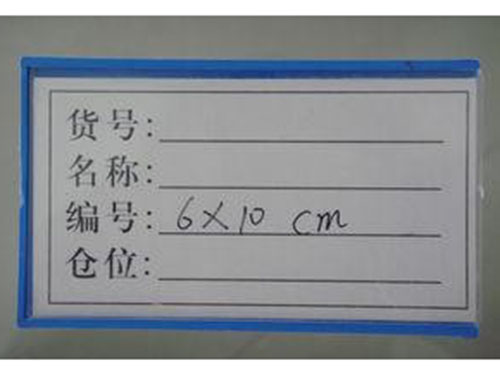 货号:
名称:
编号: 6×10 cm
仓位: